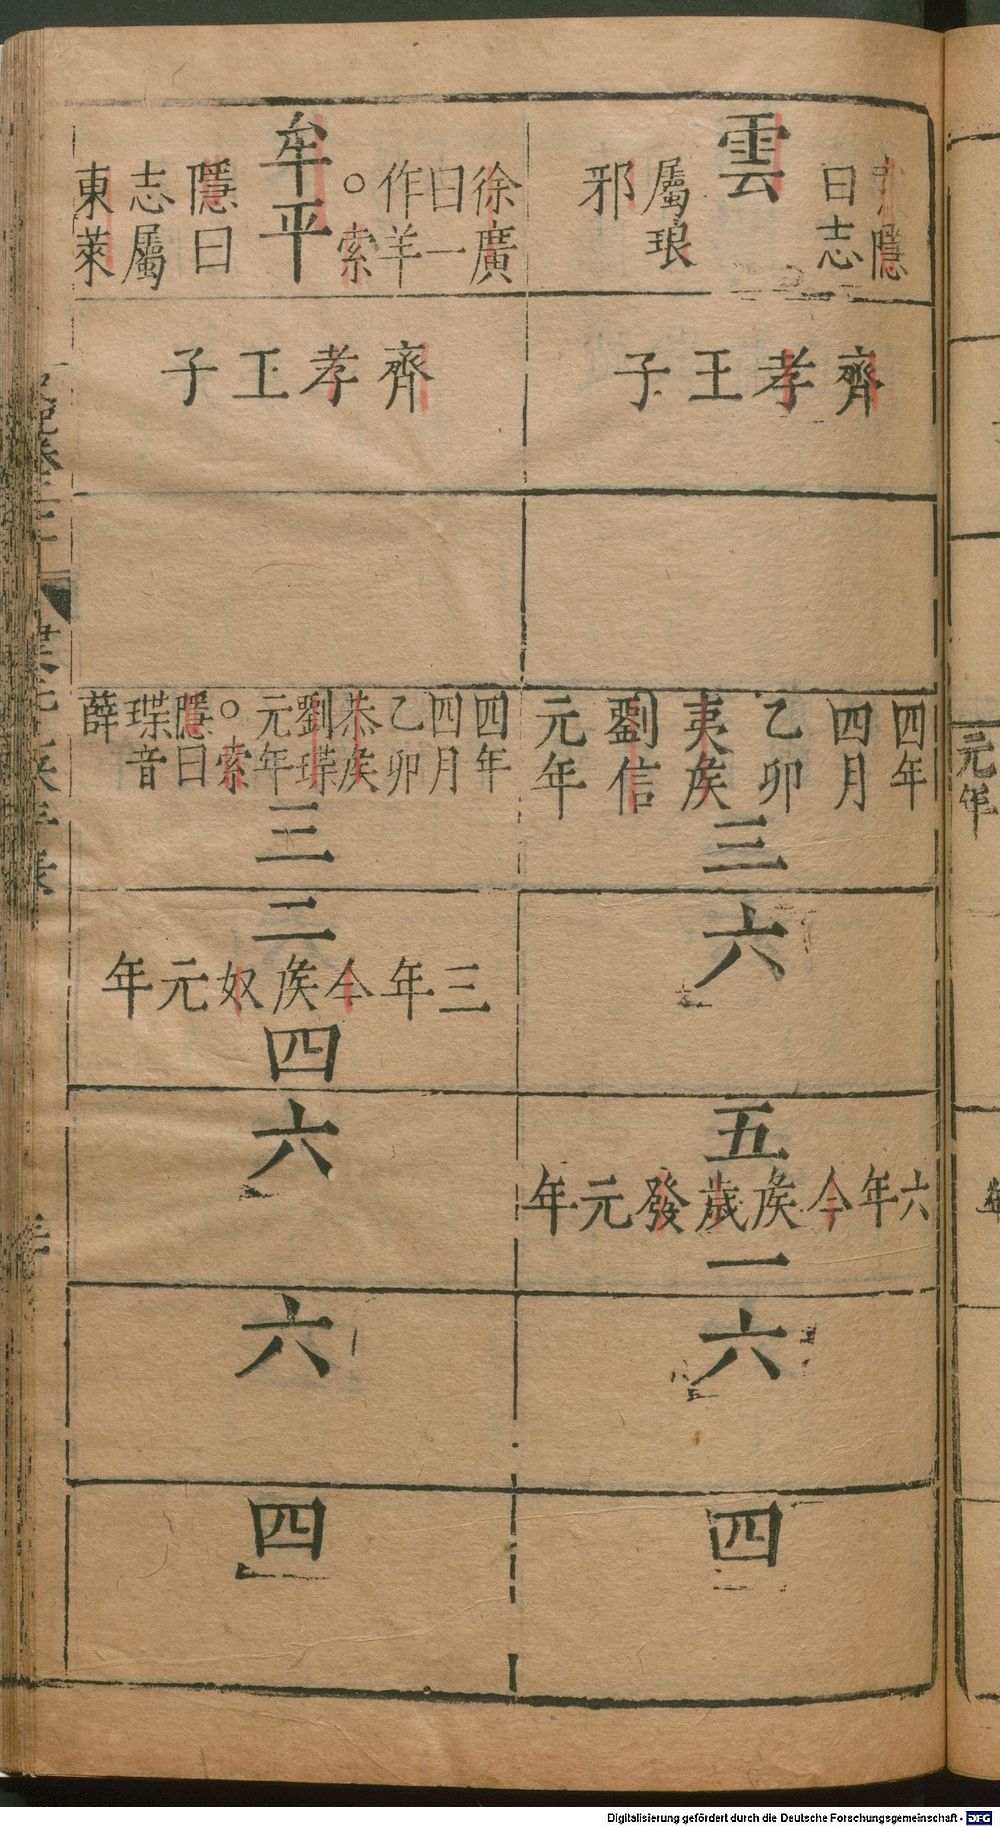 雲
索隱
曰志
屬琅
邪
齊孝王子
四年
四月
乙卯
夷矦
劉信
元年
三
六
五
六年今矦歲發元年
一
六
四
牟平
徐廣
曰一
作羊
○索
隱曰
志屬
東萊
齊孝王子
四年
四月
乙卯
恭矦
劉渫
元年
○索
隱曰
渫音
薛
三
二
三年今矦奴元年
四
六
六
四
元年
Digitalisierung gefördert durch die Deutsche Forschungsgemeinschaft - DFG